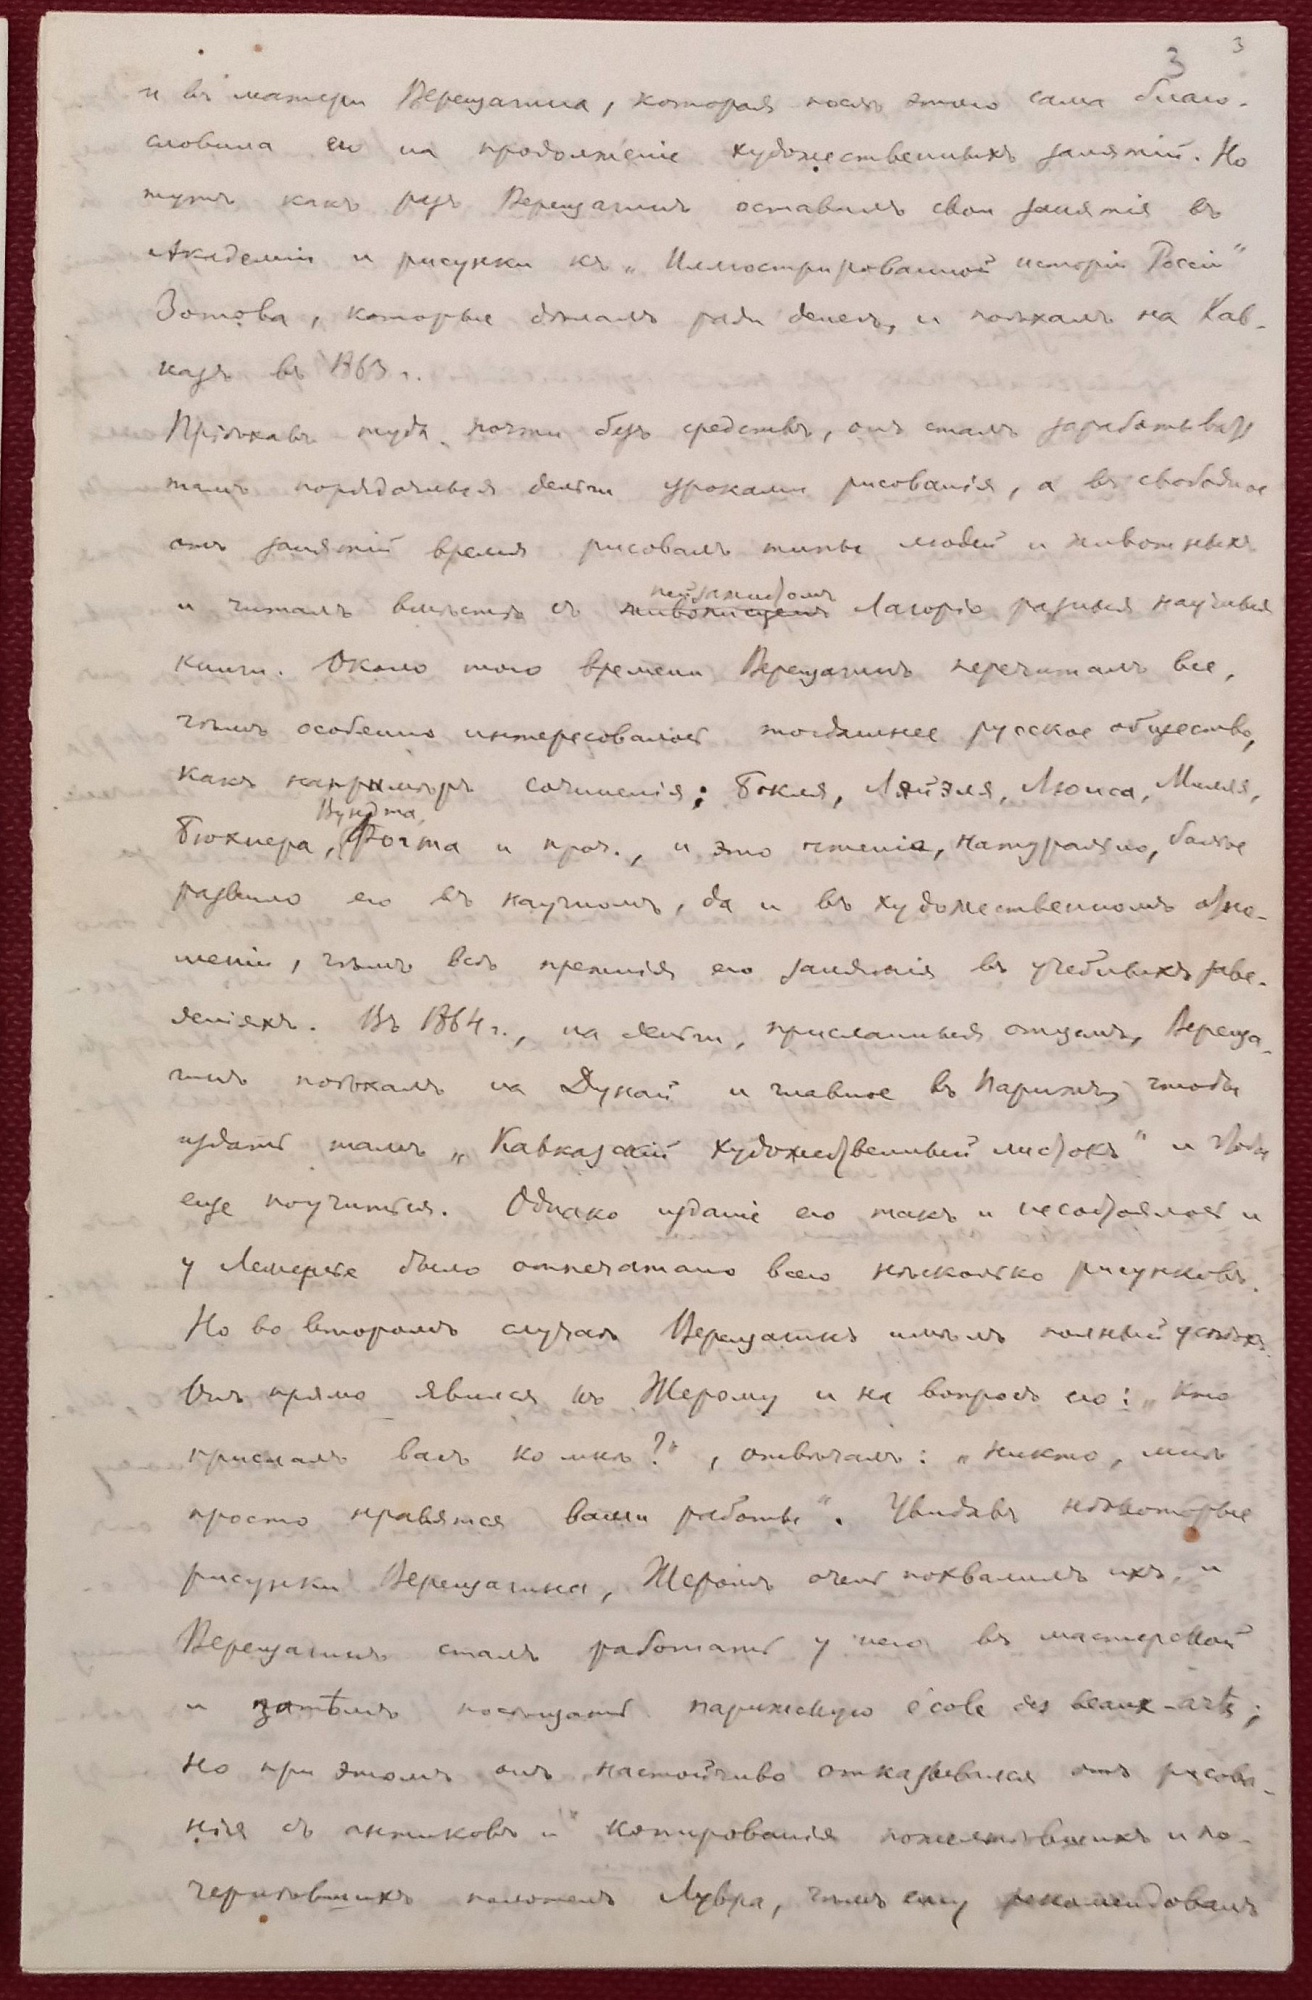 3 3
и въ матери Верещагина, которая послѣ этого сама благо-
словила его на продолженіе художественныхъ занятій. Но
тутъ какъ разъ Верещагинъ оставилъ свои занятія въ
Академіи и рисунки къ „Иллюстрированной исторіи Россіи"
Зотова, которые дѣлалъ ради денегъ, и поѣхалъ на Кав-
казъ въ 1863 г.
Пріѣхавъ туда почти безъ средствъ, онъ сталъ зарабатывать
тамъ порядочныя деньги уроками рисованія, а въ свободное
отъ занятій время рисовалъ типы людей и животныхъ
пейзажистомъ
и читалъ вмѣстѣ съ живописцемъ Лагоріо разныя научныя
книги. Около того времени Верещагинъ перечиталъ все,
чѣмъ особенно интересовалось тогдашнее русское общество,
какъ напримѣръ сочиненія: Бокля, Ляйэля, Люиса, Милля,
Вундта,
Бюхнера, Фогта и проч., и это чтеніе, натурально, болѣе
развило его въ научномъ, да и въ художественномъ отно-
шеніи, чѣмъ всѣ прежнія его занятія въ учебныхъ заве-
деніяхъ. Въ 1864 г., на деньги, присланныя отцемъ, Вереща-
гинъ поѣхалъ на Дунай и главное въ Парижъ, чтобы
издать тамъ „Кавказскій художественный листокъ" и чтобы
еще поучиться. Однако изданіе его такъ и не состоялось и
у Лемерсье было отпечатано всего нѣсколько рисунковъ.
Но во второмъ случаѣ Верещагинъ имѣлъ полный успѣхъ.
Онъ прямо явился къ Жерому и на вопросъ его: „кто
прислалъ васъ ко мнѣ?", отвѣчалъ: „никто, мнѣ
просто нравятся ваши работы". Увидавъ нѣкоторые
рисунки Верещагина, Жеромъ очень похвалилъ ихъ, и
Верещагинъ сталъ работать у него въ мастерской
и затѣмъ посѣщать парижскую école des beaux-arts;
но при этомъ онъ настойчиво отказывался отъ рисова-
нія съ антиковъ и копированія пожелтѣвшихъ и по-
чернѣвшихъ полотенъ Лувра, чѣмъ ему рекомендовалъ